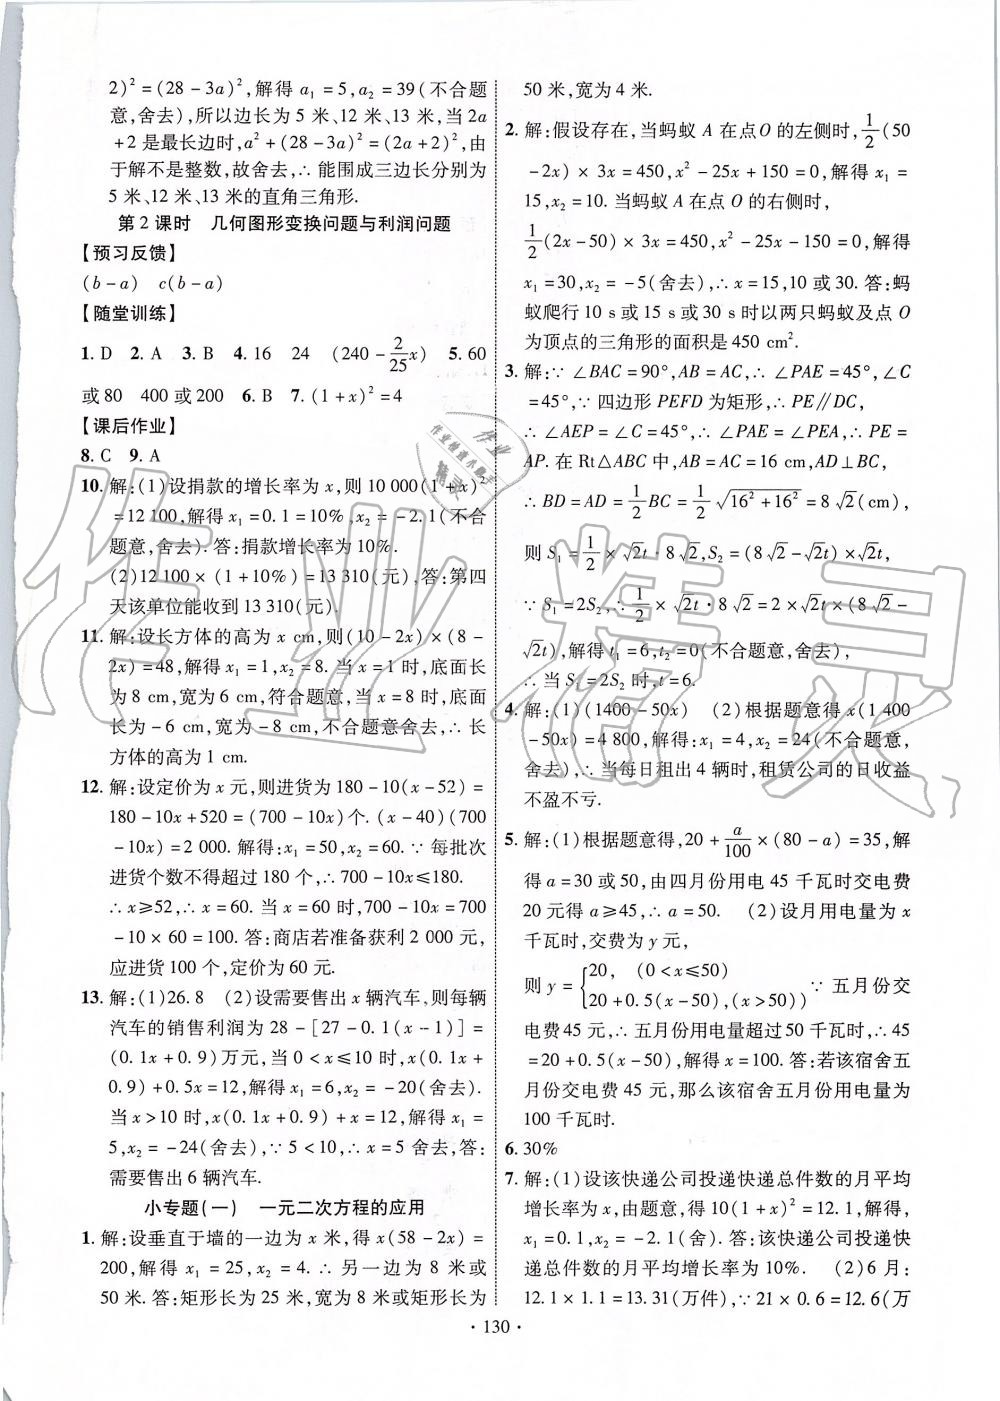 2)²=(28-3a)²,解得 a₁=5,a₂=39(不合题
意,舍去),所以边长为 5 米、12 米、13 米,当 2a
+2 是最长边时,a²+(28-3a)²=(2a+2)²,由
于解不是整数,故舍去,∴ 能围成三边长分别为
5 米、12 米、13 米的直角三角形.
第 2 课时 几何图形变换问题与利润问题
【预习反馈】
(b-a) c(b-a)
【随堂训练】
1. D 2. A 3. B 4. 16 24 (240-2/25x) 5. 60
或 80 400 或 200 6. B 7. (1+x)²=4
【课后作业】
8. C 9. A
10. 解:(1)设捐款的增长率为 x,则 10 000(1+x)²
=12 100,解得 x₁=0.1=10%,x₂=-2.1(不合
题意,舍去).答:捐款增长率为 10%.
(2)12 100×(1+10%)=13 310(元),答:第四
天该单位能收到 13 310(元).
11. 解:设长方体的高为 x cm,则(10-2x)×(8-
2x)=48,解得 x₁=1,x₂=8. 当 x=1 时,底面长
为 8 cm,宽为 6 cm,符合题意,当 x=8 时,底面
长为-6 cm,宽为-8 cm,不合题意舍去,∴ 长
方体的高为 1 cm.
12. 解:设定价为 x 元,则进货为 180-10(x-52)=
180-10x+520=(700-10x)个. (x-40)(700
-10x)=2 000. 解得:x₁=50,x₂=60. ∵ 每批次
进货个数不得超过 180 个,∴700-10x≤180.
∴x≥52,∴x=60. 当 x=60 时,700-10x=700
-10×60=100. 答:商店若准备获利 2 000 元,
应进货 100 个,定价为 60 元.
13. 解:(1)26.8 (2)设需要售出 x 辆汽车,则每辆
汽车的销售利润为 28-[27-0.1(x-1)]=
(0.1x+0.9)万元,当 0<x≤10 时,x(0.1x+
0.9)+0.5x=12,解得 x₁=6,x₂=-20(舍去).
当 x>10 时,x(0.1x+0.9)+x=12,解得 x₁=
5,x₂=-24(舍去),∵5<10,∴x=5 舍去,答:
需要售出 6 辆汽车.
小专题(一) 一元二次方程的应用
1. 解:设垂直于墙的一边为 x 米,得 x(58-2x)=
200,解得 x₁=25,x₂=4. ∴ 另一边为 8 米或
50 米. 答:矩形长为 25 米,宽为 8 米或矩形长为
50 米,宽为 4 米.
2. 解:假设存在,当蚂蚁 A 在点O 的左侧时,1/2(50
-2x)×3x=450,x²-25x+150=0,解得 x₁=
15,x₂=10. 当蚂蚁 A 在点 O 的右侧时,
1/2(2x-50)×3x=450,x²-25x-150=0,解得
x₁=30,x₂=-5(舍去),∴x=15,10 或 30. 答:蚂
蚁爬行 10 s 或 15 s 或 30 s 时以两只蚂蚁及点 O
为顶点的三角形的面积是 450 cm².
3. 解:∵ ∠BAC=90°,AB=AC,∴∠PAE=45°,∠C
=45°,∵ 四边形 PEFD 为矩形,∴PE∥DC,
∴∠AEP=∠C=45°,∴∠PAE=∠PEA,∴PE=
AP. 在 Rt△ABC 中,AB=AC=16 cm,AD⊥BC,
∴BD=AD=1/2BC=1/2√(16²+16²)=8√2(cm),
则 S₁=1/2×√2t·8√2,S₂=(8√2-√2t)×√2t,
∵S₁=2S₂,∴1/2×√2t·8√2=2×√2t×(8√2-
√2t),解得 t₁=6,t₂=0(不合题意,舍去),
∴ 当 S₁=2S₂ 时,t=6.
4. 解:(1)(1400-50x) (2)根据题意得 x(1 400
-50x)=4 800,解得:x₁=4,x₂=24(不合题意,
舍去),∴ 当每日租出 4 辆时,租赁公司的日收益
不盈不亏.
5. 解:(1)根据题意得,20+a/100×(80-a)=35,解
得 a=30 或 50,由四月份用电 45 千瓦时交电费
20 元得 a≥45,∴a=50. (2)设月用电量为 x
千瓦时,交费为 y 元,
则 y={20, (0<x≤50)
20+0.5(x-50),(x>50)} ∵ 五月份交
电费 45 元,∴ 五月份用电量超过 50 千瓦时,∴45
=20+0.5(x-50),解得 x=100. 答:若该宿舍五
月份交电费 45 元,那么该宿舍五月份用电量为
100 千瓦时.
6. 30%
7. 解:(1)设该快递公司投递快递总件数的月平均
增长率为 x,根据题意,得 10(1+x)²=12.1,解得,
x₁=0.1,x₂=-2.1(舍). 答:该快递公司投递快
递总件数的月平均增长率为 10%. (2)6 月:
12.1×1.1=13.31(万件),∵21×0.6=12.6(万
· 130 ·
作业精灵